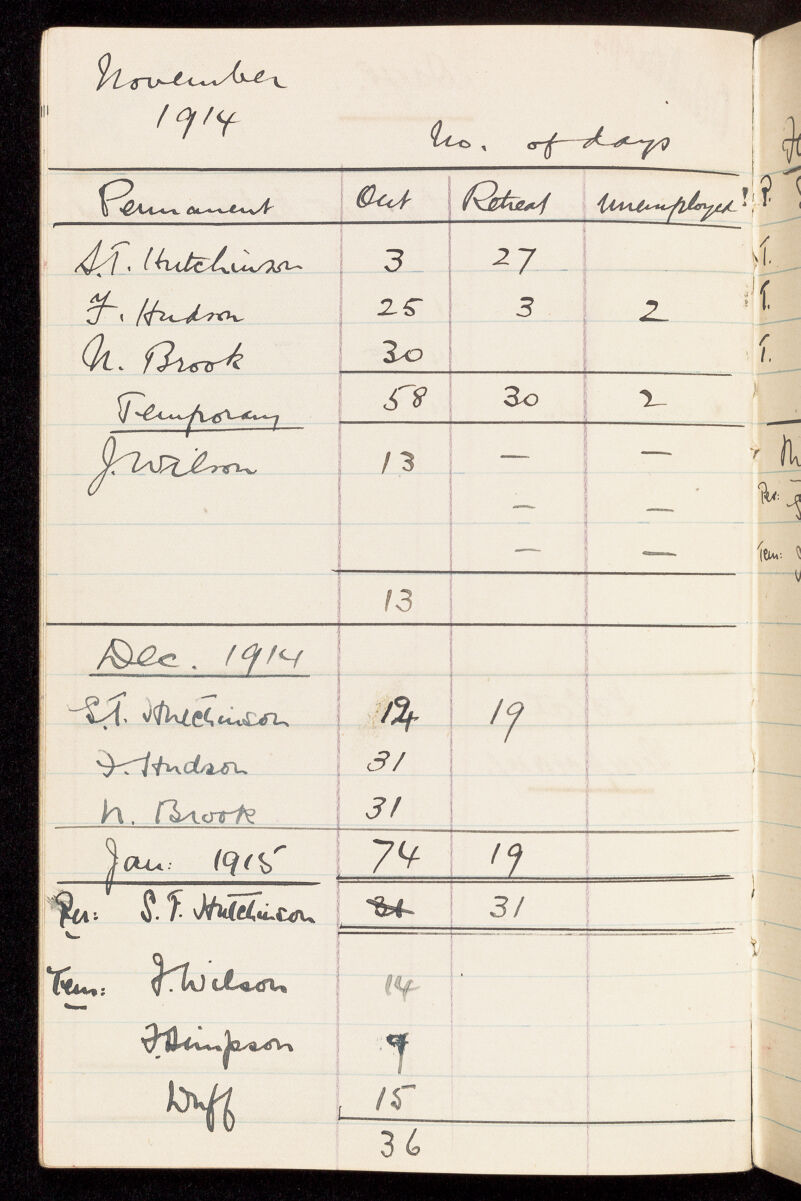 November
1914
No. of days
Permanent Out Retreat Unemployed
S.T. Hutchinson 3 27
F. Hudson 25 3 2
N. Brook 30
58 30 2
Temporary
J. Wilson 13 — —
— —
— —
13
Dec. 1914
S.T. Hutchinson 12 19
F. Hudson 31
N. Brook 31
74 19
Jan: 1915
Per: S. T. Hutchinson 31 31
Tem: J. Wilson 14
J. Simpson
Duff 15
36
P.
T.
T.
T.
Per:
Tem: